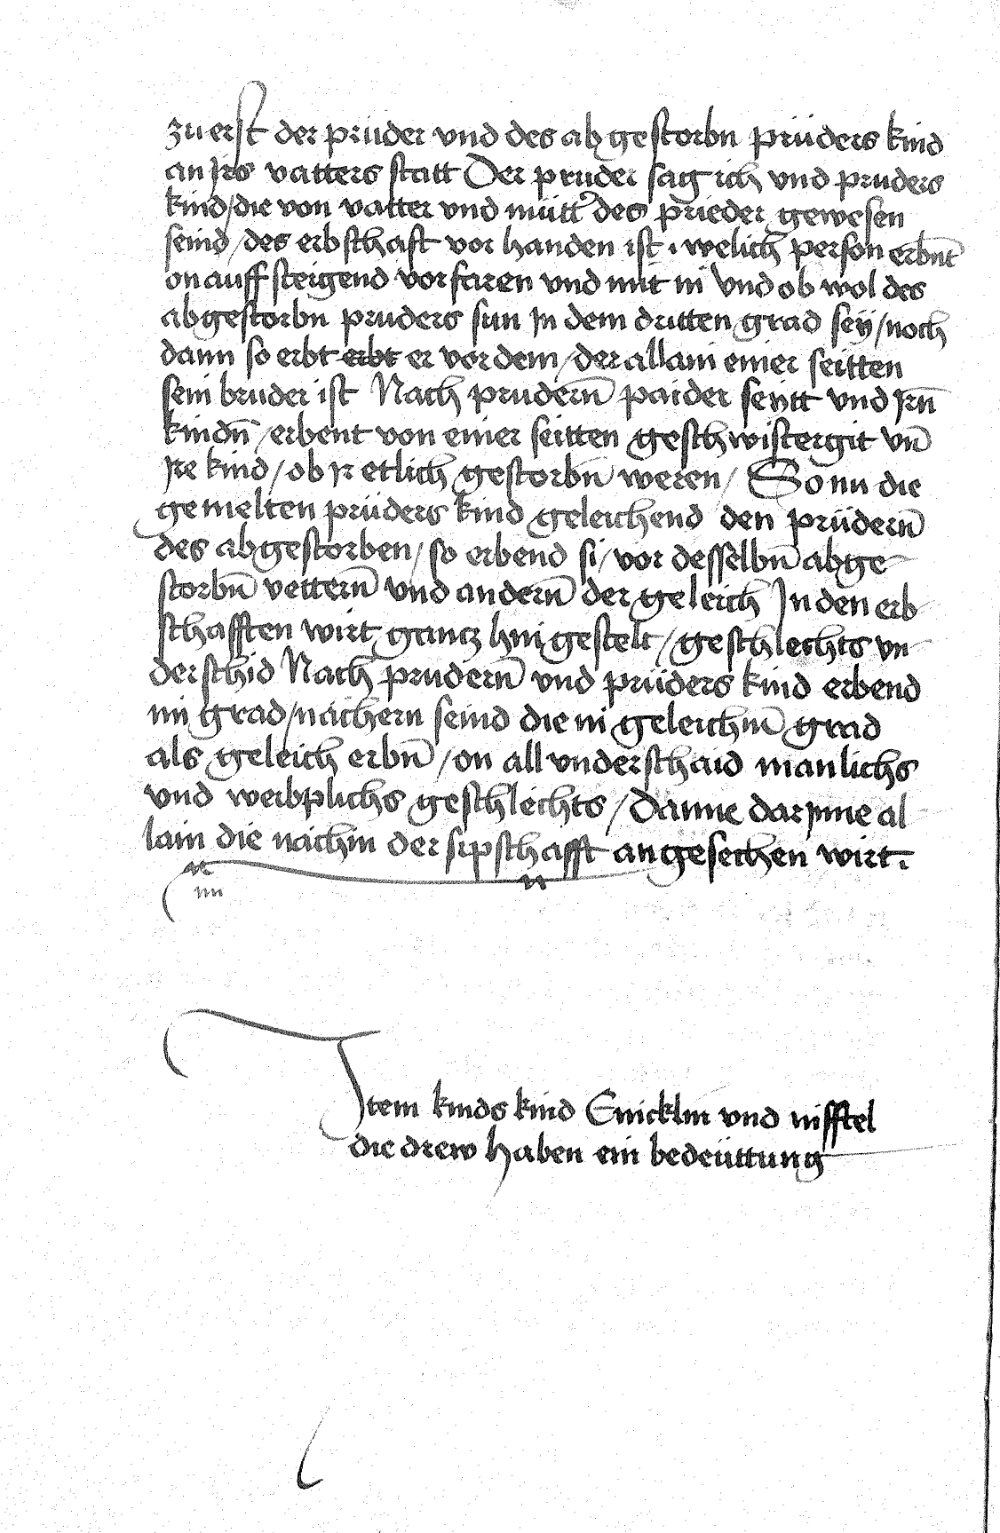 zu erst der prüder vnd des ab gestorbn prüders kind
an Jrs vatters statt Der pruder sag ich vnd pruders
kind / die von vatter vnd mütt' des prieder gewesen
seind / des erbschaft vor handen ist . welich person erbnt
on auff steigend vorfaren vnd mit in Vnd ob wol des
abgestorbn pruders sun Jn dem dritten grad seÿ / noch
dann so erbt erbt er vor dem / der allain einer seitten
sein bruder ist Nach prudern̄ paider seytt vnd Jrn̄
kindn̄ / erbent von einer seitten geschwistergit vn̄
Jre kind / ob Jr etlich gestorbn̄ weren / So nu die
gemelten prüders kind geleichend den prüdern̄
des abgestorben / so erbend si / vor desselbn̄ abge
storbn̄ vettern̄ vnd andern̄ der geleich Jn den erb
schafften wirt gancz hin gestelt / geschlechts vn
derschid Nach prudern̄ vnd prüders kind erbend
im grad / nächern seind die in geleichm̄ grad
als geleich erbn̄ / on all vnderschaid manlichs
vnd weibplichs geschlechts / Danne darJnne al
lain die nächin der sipschafft angesechen wirt .
Jtem kinds kind Enicklin vnd nifftel
die drew haben ein bedeüttung